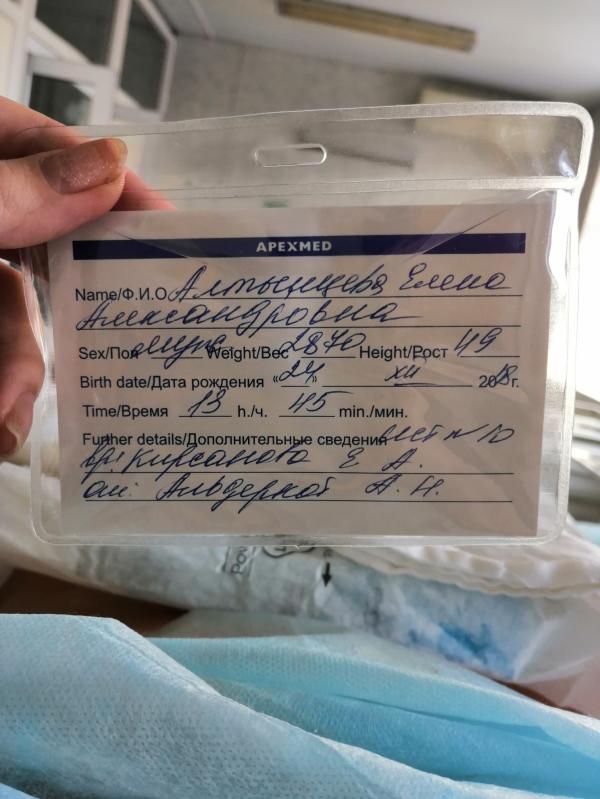 APEXMED
Name/Ф.И.О Алтынцева Елена
Александровна
Sex/Пол муж. Weight/Вес 2870 Height/Рост 49
Birth date/Дата рождения «24» XII 2018г.
Time/Время 13 h./ч. 45 min./мин.
Further details/Дополнительные сведения ИСТ N 10
вр: Кирсанова Е А.
ак: Альдеркот А. Н.